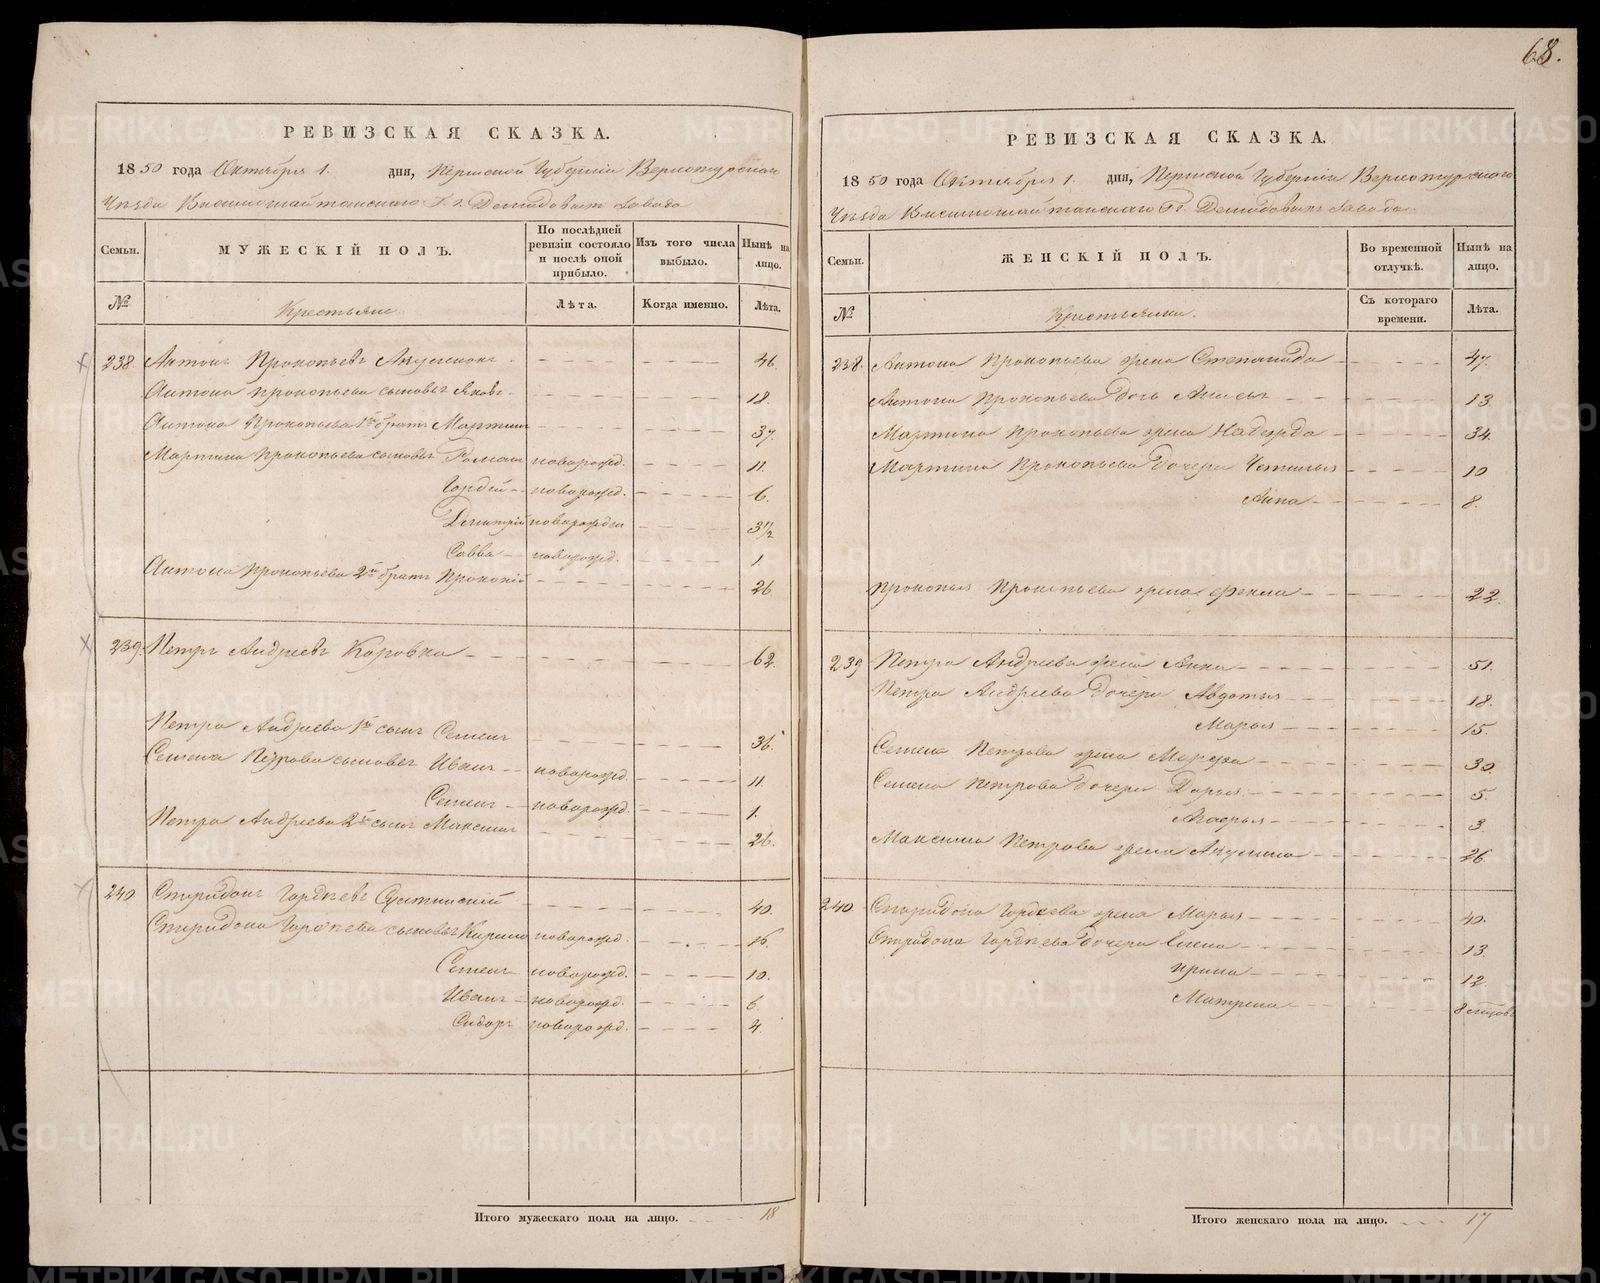 68.
РЕВИЗСКАЯ СКАЗКА.
1850 года Октября 1. дня, Пермской Губернии Верхотурскаго
Уезда Висимошайтанскаго Гг. Демидовыхъ Завода
Семьи.
МУЖЕСКІЙ ПОЛЪ.
По послѣдней ревизіи состояло и послѣ оной прибыло.
Изъ того числа выбыло.
Нынѣ на лицо.
№
Крестьяне.
Лѣта.
Когда именно.
Лѣта.
238. Антонъ Прокопьевъ 46.
Антона Прокопьева сыновья Яковъ 18.
Антона Прокопьева 1й братъ Мартинъ 37.
Мартина Прокопьева сыновья Романъ новорожд. 11.
Гордей новорожд. 6.
Дмитрій новорожден 3 1/2
Савва новорожд. 1
Антона Прокопьева 2й братъ Прокопій 26.
239. Петръ Андреевъ Коровка 62.
Петра Андреева 1й сынъ Семенъ 36.
Семена Петрова сыновья Иванъ новорожд. 11.
Семенъ новорожд. 1.
Петра Андреева 2й сынъ Максимъ 26.
240. Спиридонъ Гордѣевъ 40.
Спиридона Гордѣева сыновья Кирило новорожд. 16.
Семенъ новорожд. 10.
Иванъ новорожд. 6.
Сидоръ новорожд. 4.
Итого мужескаго пола на лицо. 18
РЕВИЗСКАЯ СКАЗКА.
1850 года Октября 1. дня, Пермской Губерніи Верхотурскаго
Уезда Висимошайтанскаго Гг. Демидовыхъ Завода.
Семьи.
ЖЕНСКІЙ ПОЛЪ.
Во временной отлучкѣ.
Нынѣ на лицо.
№
Крестьянки.
Съ котораго времени.
Лѣта.
238. Антона Прокопьева жена Степанида 47.
Антона Прокопьева дочь 13.
Мартина Прокопьева жена Надежда 34.
Мартина Прокопьева дочери 10
Анна 8.
Прокопья Прокопьева жена Фекла 22.
239 Петра Андреева жена Анна 51.
Петра Андреева дочери Авдотья 18.
Марья 15.
Семена Петрова жена Марфа 30.
Семена Петрова дочери Дарья 5.
3.
Максима Петрова жена Акулина 26.
240. Спиридона Гордеева жена Марья 40.
Спиридона Гордѣева дочери Елена 13.
Ирина 12.
Матрена 8 мѣсяцовъ
Итого женскаго пола на лицо. 17
METRIKI.GASO-URAL.RU